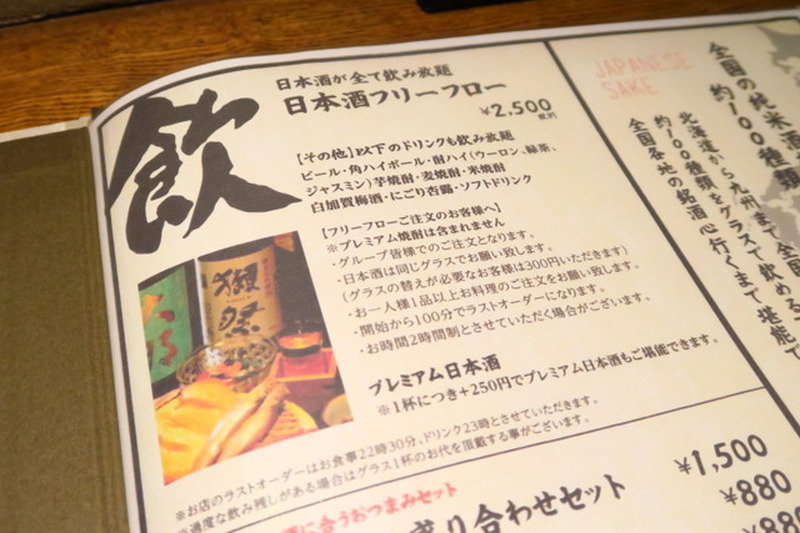 飲
日本酒が全て飲み放題
日本酒フリーフロー
¥2,500
【その他】以下のドリンクも飲み放題
ビール・角ハイボール・酎ハイ(ウーロン、緑茶、
ジャスミン)芋焼酎・麦焼酎・米焼酎
白加賀梅酒・にごり杏露・ソフトドリンク
【フリーフローご注文のお客様へ】
※プレミアム焼酎は含まれません
・グループ皆様でのご注文となります。
・日本酒は同じグラスでお願い致します。
(グラスの替えが必要なお客様は300円いただきます)
・お一人様1品以上お料理のご注文をお願い致します。
・開始から100分でラストオーダーになります。
・お時間2時間制とさせていただく場合がございます。
獺祭
プレミアム日本酒
※1杯につき+250円でプレミアム日本酒もご堪能できます。
※お店のラストオーダーはお食事22時30分、ドリンク23時とさせていただきます。
※過度な飲み残しがある場合はグラス1杯のお代を頂戴する事がございます。
に合うおつまみセット
盛り合わせセット
¥1,500
¥880
JAPANESE
SAKE
全国の純米酒
約100種類
北海道から九州まで全国
約100種類をグラスで飲める
全国各地の銘酒心行くまで堪能